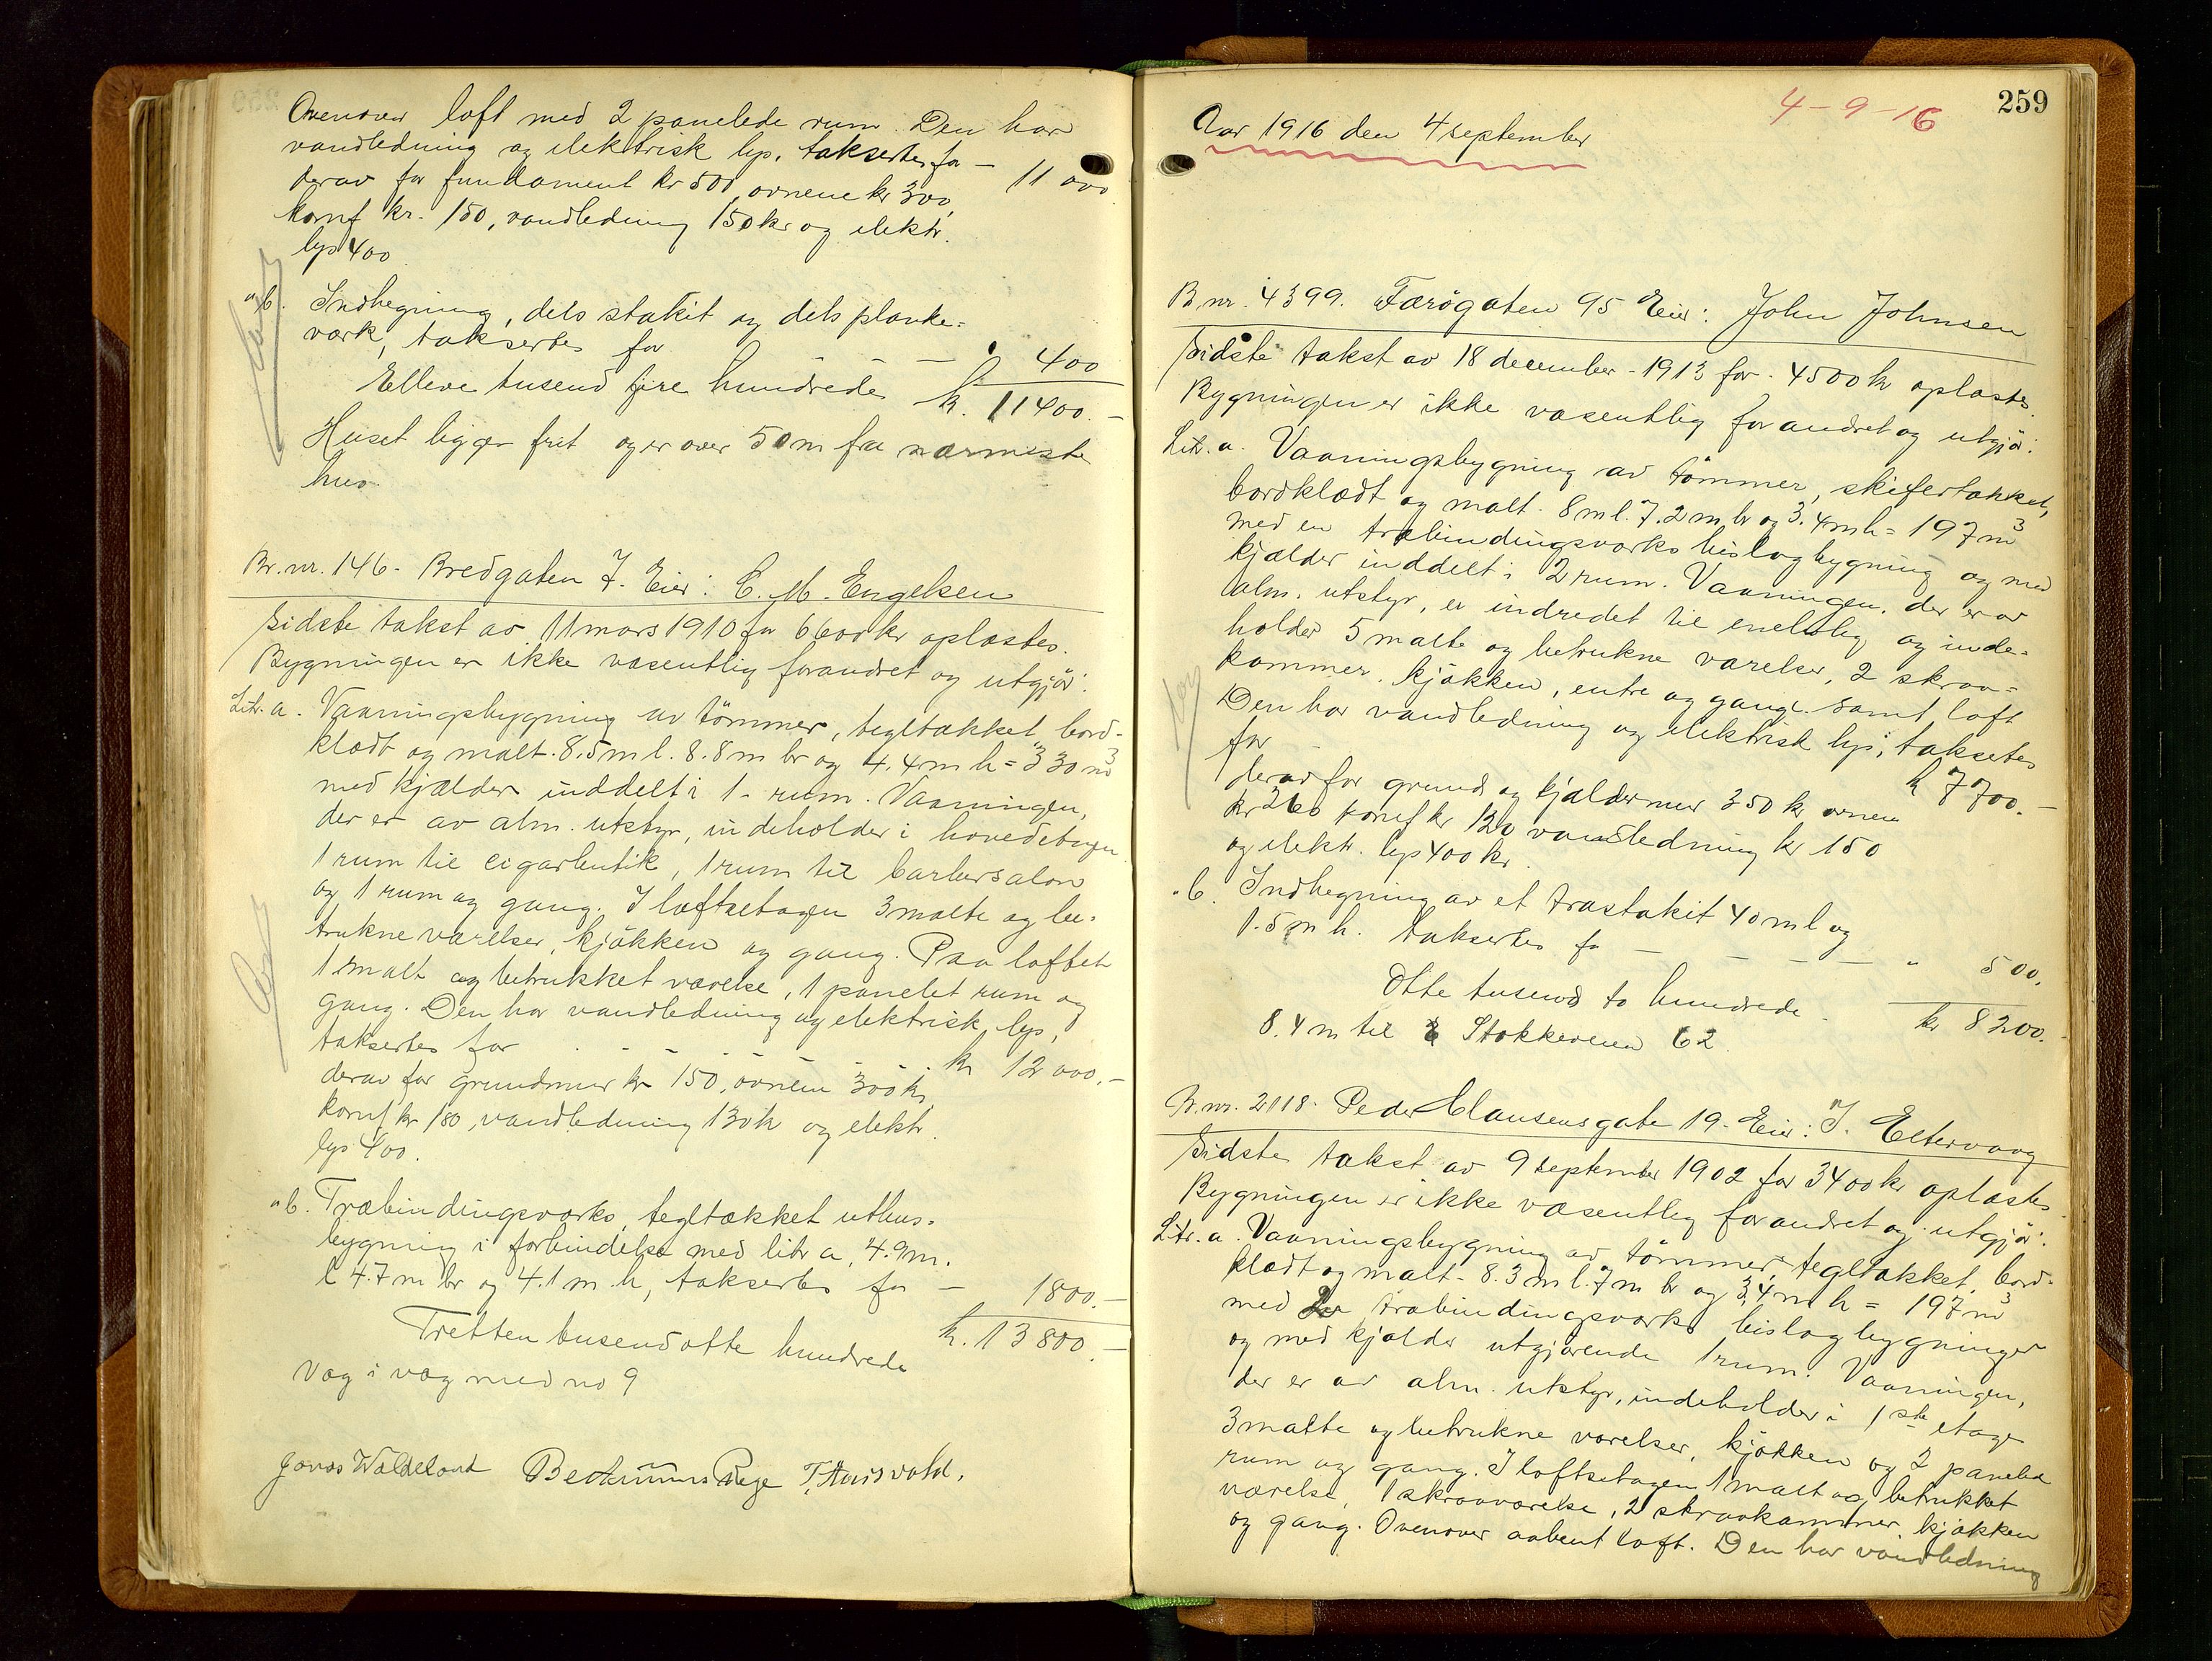 Ovenover loft med 2 panelede rum. Den har
vandledning og elektrisk lys, taksertes for — 11 000
derav for fundament kr 500, ovnene kr 300,
komf kr. 150, vandledning 150 kr og elektr.
lys 400
" b. Indhegning, dels stakit og dels planke-
værk, taksertes for — — — " 400
Elleve tusend fire hundrede kr. 11400.—
Huset ligger frit og er over 50 m fra nærmeste
hus
Br. nr. 146. Bredgaten 7. Eier: C. M. Engelsen
Sidste takst av 11 mars 1910 for 6600 kr oplæstes.
Bygningen er ikke væsentlig forandret og utgjör:
Litr. a. Vaaningsbygning av tömmer, tegltækket, bord-
klædt og malt. 8.5 m l. 8.8 m br og 4.4 m h = 330 m3
med kjælder inddelt i 1 rum. Vaaningen,
der er av alm. utstyr, indeholder i hovedetagen
1 rum til cigarbutik, 1 rum til barbersalon
og 1 rum og gang. I loftsetagen 3 malte og be-
trukne værelser, kjökken og gang. Paa loftet
1 malt og betrukket værelse, 1 panelet rum og
gang. Den har vandledning og elektrisk lys,
taksertes for — — — — kr 12 000.—
derav for grundmur kr 150, ovnene 300 kr,
komf kr 180, vandledning 130 kr og elektr.
lys 400.
" b. Træbindingsværks, tegltækket uthus-
bygning i forbindelse med litr a, 4.9 m.
l 4.7 m br og 4.1 m h, taksertes for — 1800.—
Tretten tusend otte hundrede kr. 13 800.—
Væg i væg med no 9
Jonas Waldeland T. Hausvold.
259
4-9-16
Aar 1916 den 4 september
B nr. 4399. Færögaten 95 Eier: John Johnsen
Sidste takst av 18 december 1913 for 4500 kr oplæstes.
Bygningen er ikke væsentlig forandret og utgjör:
Litr. a. Vaaningsbygning av tömmer, skifertækket,
bordklædt og malt. 8 m l. 7.2 m br og 3.4 m h = 197 m3
med en træbindingsværks bislagbygning og med
kjælder inddelt i 2 rum. Vaaningen, der er av
alm. utstyr, er indredet til enebolig og inde-
holder 5 malte og betrukne værelser, 2 skraa-
kammer, kjökken, entre og gange samt loft
Den har vandledning og elektrisk lys, taksertes
for kr 7700.—
derav for grund og kjældermur 350 kr, ovnene
kr 260 komf kr 120 vandledning kr 150
og elektr. lys 400 kr.
" b. Indhegning av et træstakit 40 m l og
1.5 m h. taksertes for — — — — " 500.
Otte tusend to hundrede kr 8200.
8.4 m til Stokkeveien 62
Br. nr. 2118. Peder Clausensgate 19. Eier: J. Eltervaag
Sidste takst av 9 september 1902 for 3400 kr oplæstes
Bygningen er ikke væsentlig forandret og utgjör:
Litr. a. Vaaningsbygning av tömmer, tegltækket, bord-
klædt og malt. 8.3 m l. 7 m br og 3,4 m h = 197 m3
med træbindingsværks bislagbygninger
og med kjælder utgjörende 1 rum. Vaaningen,
der er av alm. utstyr, indeholder i 1ste etage
3 malte og betrukne værelser, kjökken og 2 panelede
rum og gang. I loftsetagen 1 malt og betrukket
værelse, 1 skraaværelse, 2 skraakammer, kjökken
og gang. Ovenover aabent loft. Den har vandledning